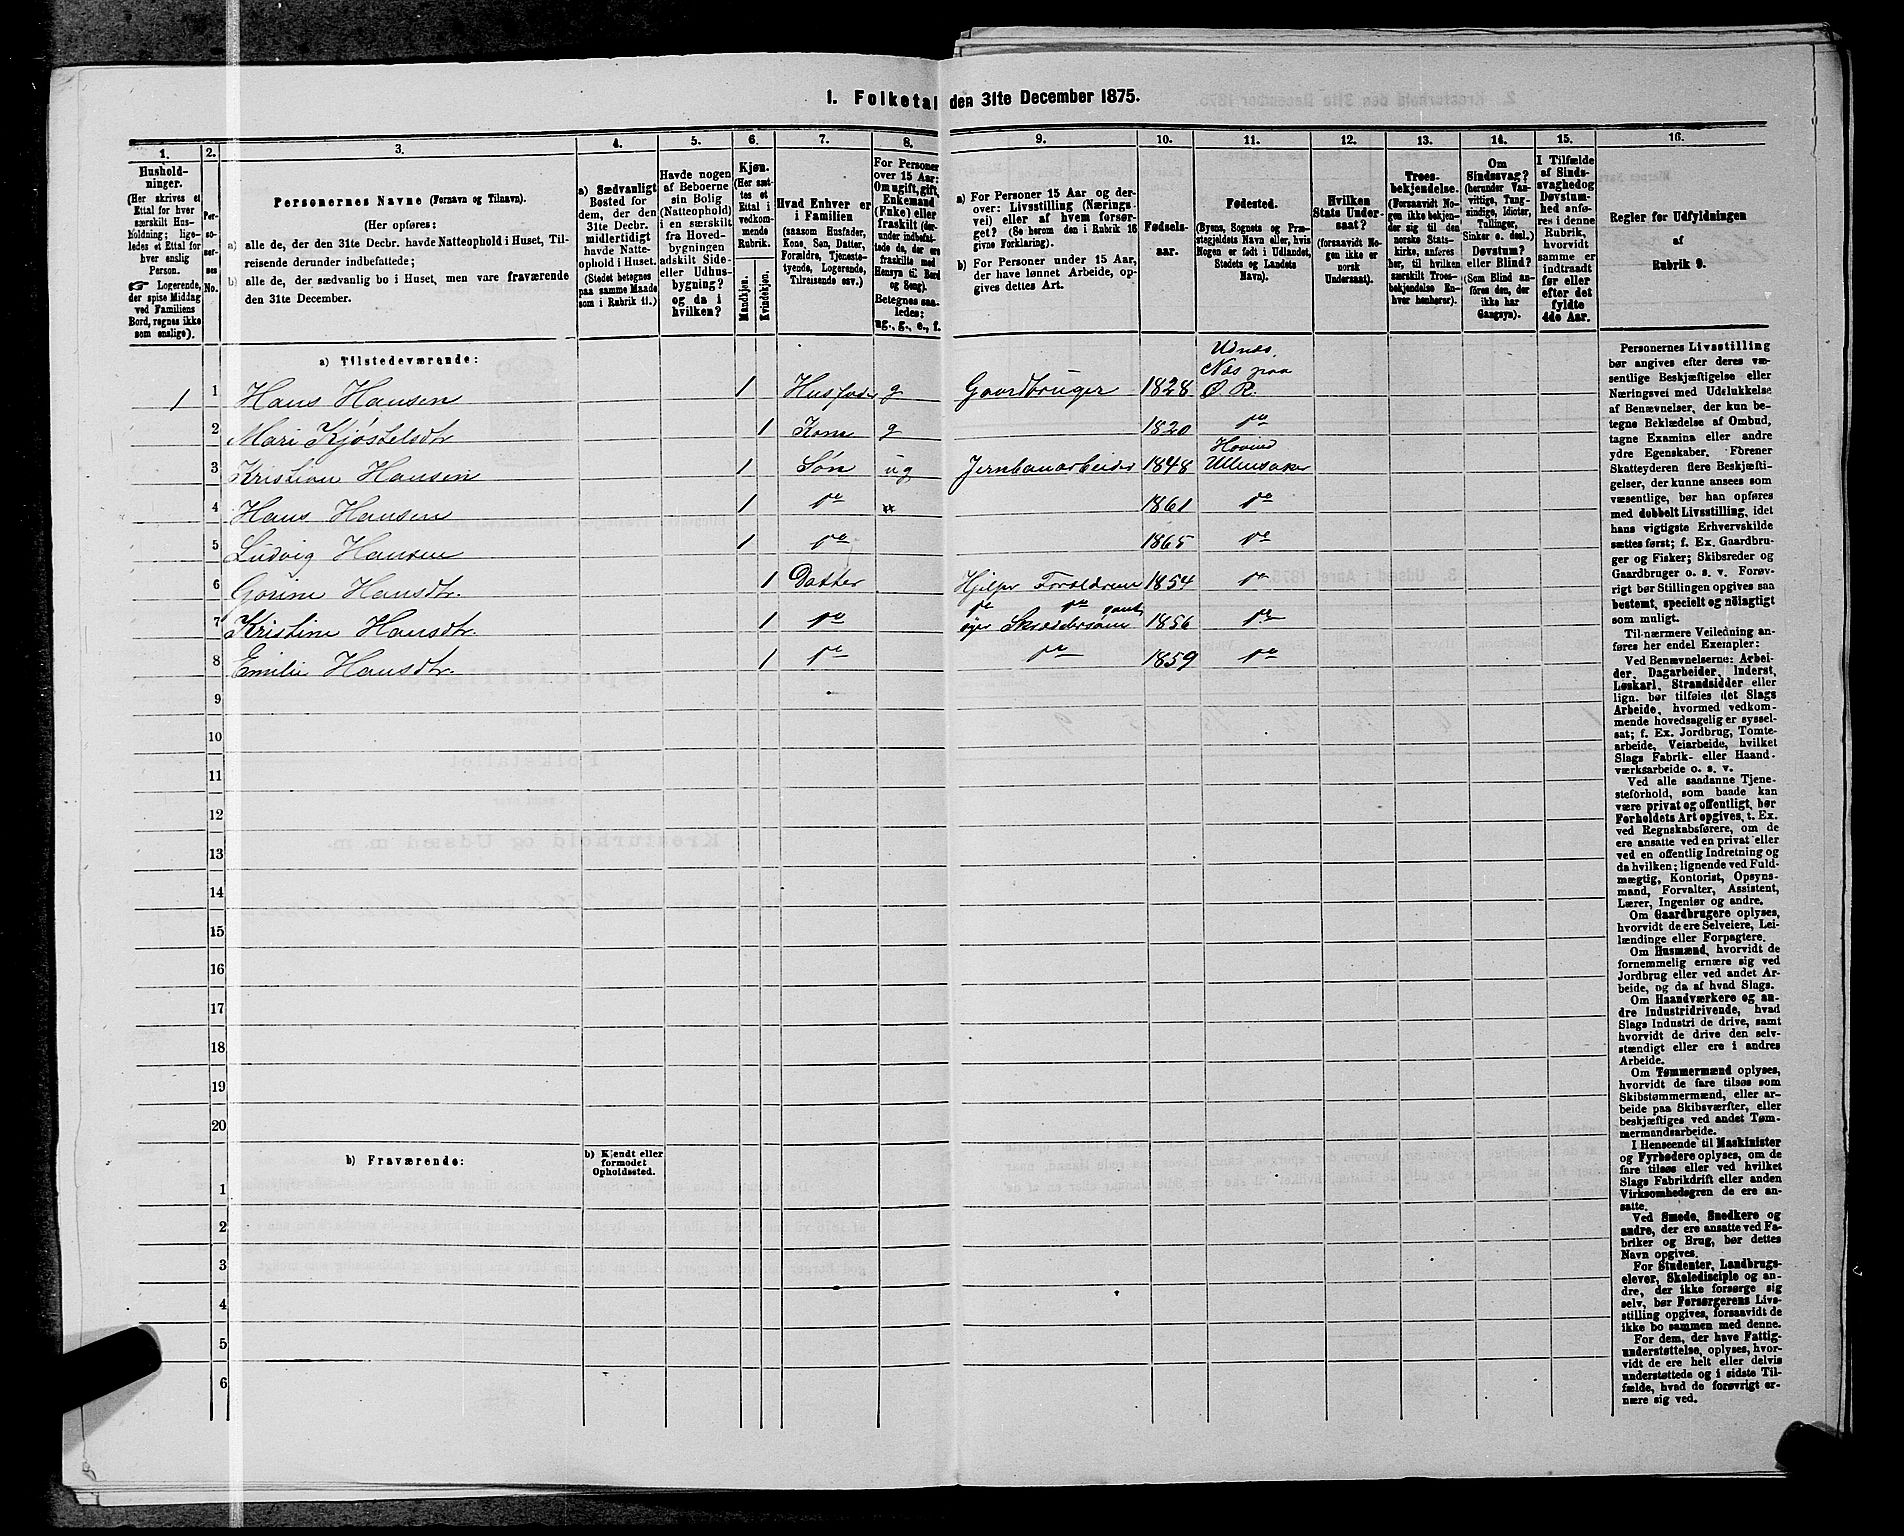 1. Folketal den 31te December 1875.
1. 2. 3. 4. 5. 6. 7. 8. 9. 10. 11. 12. 13. 14. 15. 16.
Hushold-
ninger.
(Her skrives et
Ettal for hver
særskilt Hus-
holdning; lige-
ledes et Ettal for
hver enslig
Person.
☞ Logerende,
der spise Middag
ved Familiens
Bord, regnes ikke
som enslige).
Per-
so-
ner-
nes
No.
Personernes Navne (Fornavn og Tilnavn).
(Her opføres:
a) alle de, der den 31te Decbr. havde Natteophold i Huset, Til-
reisende derunder indbefattede;
b) alle de, der sædvanlig bo i Huset, men vare fraværende
den 31te December.
a) Sædvanligt
Bosted for
dem, der den
31te Decbr.
midlertidigt
havde Natte-
ophold i Huset.
(Stedet betegnes
paa samme Maade
som i Rubrik 11.)
Havde nogen
af Beboerne
sin Bolig
(Natteophold)
i en særskilt
fra Hoved-
bygningen
adskilt Side-
eller Udhus-
bygning?
og da i
hvilken?
Kjøn.
(Her sæt-
tes et
Ettal i
vedkom-
mende
Rubrik.
Mandkjøn.
Kvindekjøn.
Hvad Enhver er
i Familien
(saasom Husfader,
Kone, Søn, Datter,
Forældre, Tjeneste-
tyende, Logerende,
Tilreisende osv.)
For Personer
over 15 Aar:
Om ugift, gift,
Enkemand
(Enke) eller
fraskilt (der-
under indbefat-
tede de, der ere
fraskilte med
Hensyn til Bord
og Seng).
Betegnes saa-
ledes:
ug., g., e., f.
a) For Personer 15 Aar og der-
over: Livsstilling (Nærings-
vei) eller af hvem forsør-
get? (Se herom den i Rubrik 16
givne Forklaring).
b) For Personer under 15 Aar,
der have lønnet Arbeide, op-
gives dettes Art.
Fødsels-
aar.
Fødested.
(Byens, Sognets og Præ-
stegjeldets Navn eller, hvis
Nogen er født i Udlandet,
Stedets og Landets
Navn).
Hvilken
Stats Under-
saat?
(forsaavidt No-
gen ikke er
norsk
Undersaat).
Troes-
bekjendelse.
(Forsaavidt No-
gen ikke bekjen-
der sig til den
norske Stats-
kirke, anføres
her, til hvilken
særskilt Troes-
bekjendelse En-
hver henhører).
Om
Sindssvag?
(herunder Van-
vittige, Tung-
sindige, Idioter,
Tullinger,
Sinker o. desl.)
Døvstum?
eller Blind?
(Som Blind an-
føres den, der
ikke har
Gangsyn).
I Tilfælde
af Sinds-
svaghed og
Døvstum-
hed anfø-
res i denne
Rubrik,
hvorvidt
samme er
indtraadt
før eller
efter det
fyldte
4de Aar.
Regler for Udfyldningen
af
Rubrik 9.
a) Tilstedeværende:
Udnæs.
Næs paa
1 1 Hans Hansen 1 Husfader g Gaardbruger 1828 Ø R.
2 Mari Kjøstelsdtr 1 Kone g 1820 do
Hovind
3 Kristian Hansen 1 Søn ug Jernbanarbeider 1848 Ullensaker
4 Hans Hansen 1 do 1861 do
5 Ludvig Hansen 1 do 1865 do
6 Gorine Hansdtr. 1 Datter Hjelper Forældrene 1854 do
do do samt
7 Kristine Hansdtr. 1 do øver Skreddersøm 1856 do
8 Emilie Hansdtr. 1 do do 1859 do
9
10
11
12
13
14
15
16
17
18
19
20
b) Fraværende:
b) Kjendt eller
formodet
Opholdssted.
1
2
3
4
5
6
Personernes Livsstilling
bør angives efter deres væ-
sentlige Beskjæftigelse eller
Næringsvei med Udelukkelse
af Benævnelser, der kun be-
tegne Beklædelse af Ombud,
tagne Examina eller andre
ydre Egenskaber. Forener
Skatteyderen flere Beskjæfti-
gelser, der kunne ansees som
væsentlige, bør han opføres
med dobbelt Livsstilling, idet
hans vigtigste Erhvervskilde
sættes først; f. Ex. Gaardbru-
ger og Fisker; Skibsreder og
Gaardbruger o. s. v. Forøv-
rigt bør Stillingen opgives saa
bestemt, specielt og nøiagtigt
som muligt.
Til nærmere Veiledning an-
føres her endel Exempler:
Ved Benævnelserne: Arbei-
der, Dagarbeider, Inderst,
Løskarl, Strandsidder eller
lign. bør tilføies det Slags
Arbeide, hvormed vedkom-
mende hovedsagelig er syssel-
sat; f. Ex. Jordbrug, Tomte-
arbeide, Veiarbeide, hvilket
Slags Fabrik- eller Haand-
værksarbeide o. s. v.
Ved alle saadanne Tjene-
steforhold, som baade kan
være privat og offentligt, bør
Forholdets Art opgives, t. Ex.
ved Regnskabsførere, om de
ere ansatte ved en privat eller
ved en offentlig Indretning og
da hvilken; lignende ved Fuld-
mægtig, Kontorist, Opsyns-
mand, Forvalter, Assistent,
Lærer, Ingeniør og andre.
Om Gaardbrugere oplyses,
hvorvidt de ere Selveiere, Lei-
lændinge eller Forpagtere.
Om Husmænd, hvorvidt de
fornemmelig ernære sig ved
Jordbrug eller ved andet Ar-
beide, og da af hvad Slags.
Om Haandværkere og an-
dre Industridrivende, hvad
Slags Industri de drive, samt
hvorvidt de drive den selv-
stændigt eller ere i andres
Arbeide.
Om Tømmermænd oplyses,
hvorvidt de fare tilsøs som
Skibstømmermænd, eller ar-
beide paa Skibsværfter, eller
beskjæftiges ved andet Tøm-
mermandsarbeide.
I Henseende til Maskinister
og Fyrbødere oplyses, om de
fare tilsøs eller ved hvilket
Slags Fabrikdrift eller anden
Virksomhedsgren de ere an-
satte.
Ved Smede, Snedkere og
andre, der ere ansatte ved Fa-
briker og Brug, bør dettes
Navn opgives.
For Studenter, Landbrugs-
elever, Skoledisciple og an-
dre, der ikke forsørge sig
selv, bør Forsørgerens Livs-
stilling opgives, forsaavidt de
ikke bo sammen med denne.
For dem, der have Fattig-
understøttelse, oplyses, hvor-
vidt de ere helt eller delvis
understøttede og i sidste Til-
fælde, hvad de forøvrigt er-
nære sig ved.